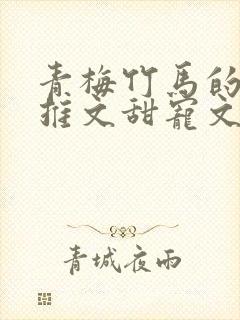 青梅竹马的
推文甜宠文
青城夜雨